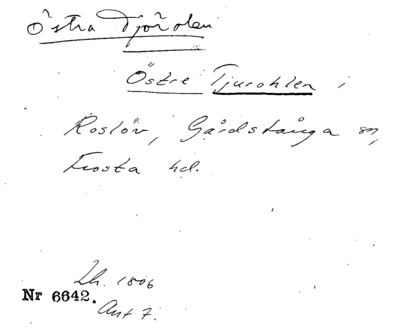 Östra Tjörolen
Östre Tjurohlen i
Roslöv, Gårdstånga sn,
Frosta hd.
Lh. 1806
Nr 6642.
Akt 7.